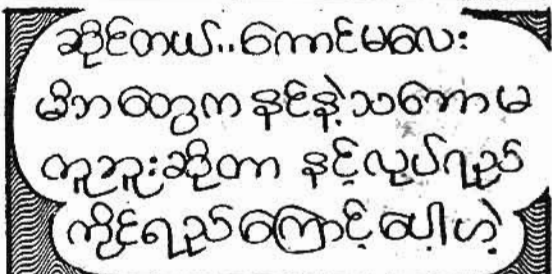 ဆိုင်တယ်..ကောင်မလေး
မိဘတွေက နင်နဲ့သဘောမ
တူဘူးဆိုတာ နင့်လုပ်ရည်
ကိုင်ရည်ကြောင့်ပေါ့ဟဲ့